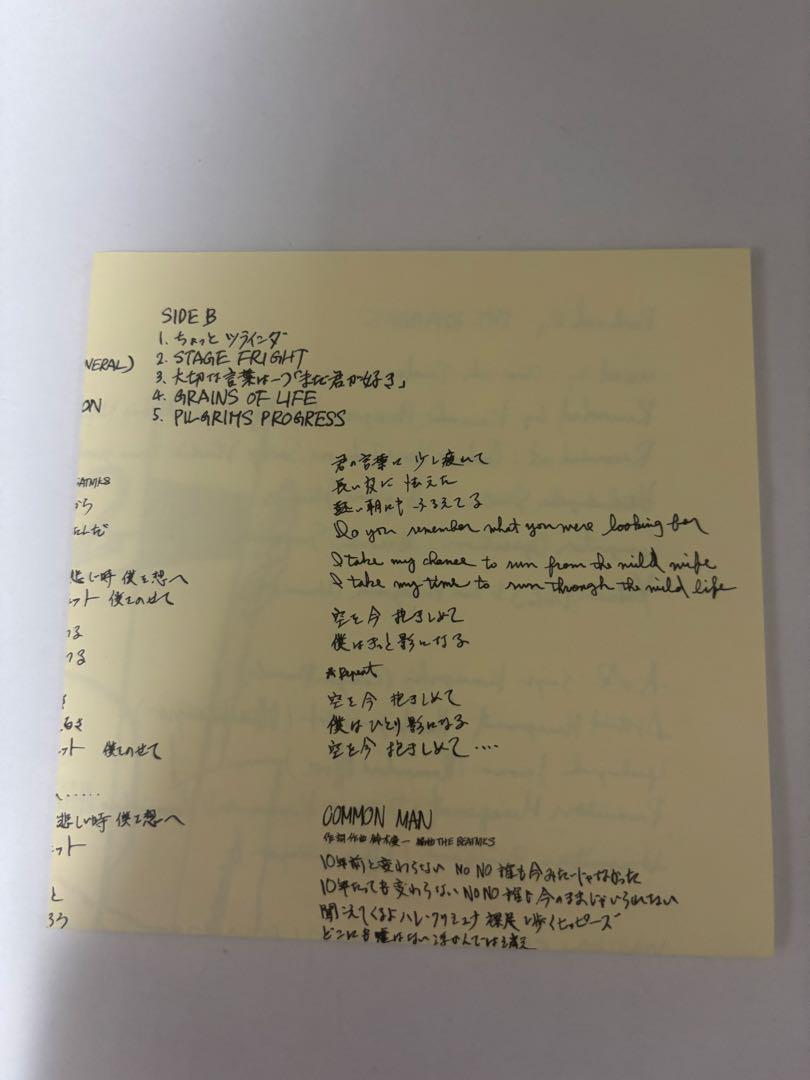 SIDE B
1. ちょっとツラインダ
2. STAGE FRIGHT
3. 大切な言葉は一つ「まだ君が好き」
4. GRAINS OF LIFE
5. PILGRIMS PROGRESS
NERAL)
ON
EATNIKS
から
たんだ
悲しい時 僕を想へ
ット 僕をのせて
つる
つる
ット 僕をのせて
.....
悲しい時 僕を想へ
ット
と
ろう
君の言葉に 少し疲れて
長い夜に 怯えた
短い朝にも ふるえてる
Do you remember what you were looking for
I take my chance to run from the mild wife
I take my time to run through the mild life
空を今 抱きしめて
僕はきっと影になる
* Repeat
空を今 抱きしめて
僕はひとり影になる
空を今 抱きしめて....
COMMON MAN
作詞作曲 鈴木慶一 編曲 THE BEATNIKS
10年前と変わらない NO NO 誰も今みたいじゃなかった
10年たっても変わらない NO NO 誰も今のままじゃいられない
聞こえてくるよ ハレ・クリシュナ 裸足で歩くヒッピーズ
どこにも嘘はない 浮かんでは消え